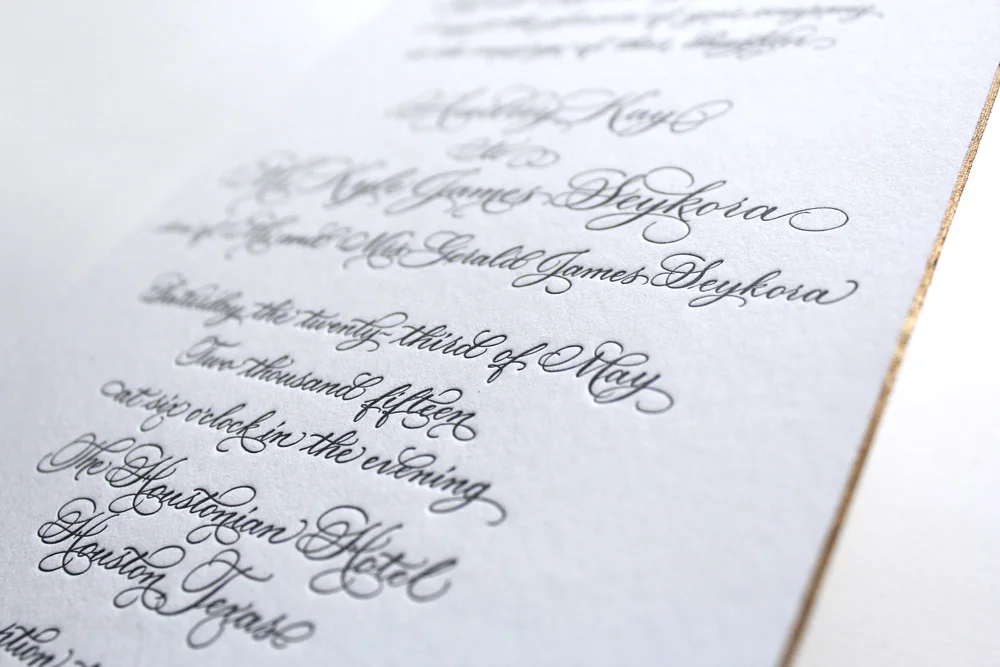 of your company
of their daughter
Kay
to
Mr. Kyle James Seykora
son of Mr. and Mrs. Gerald James Seykora
Saturday, the twenty-third of May
Two thousand fifteen
at six o'clock in the evening
The Houstonian Hotel
Houston, Texas